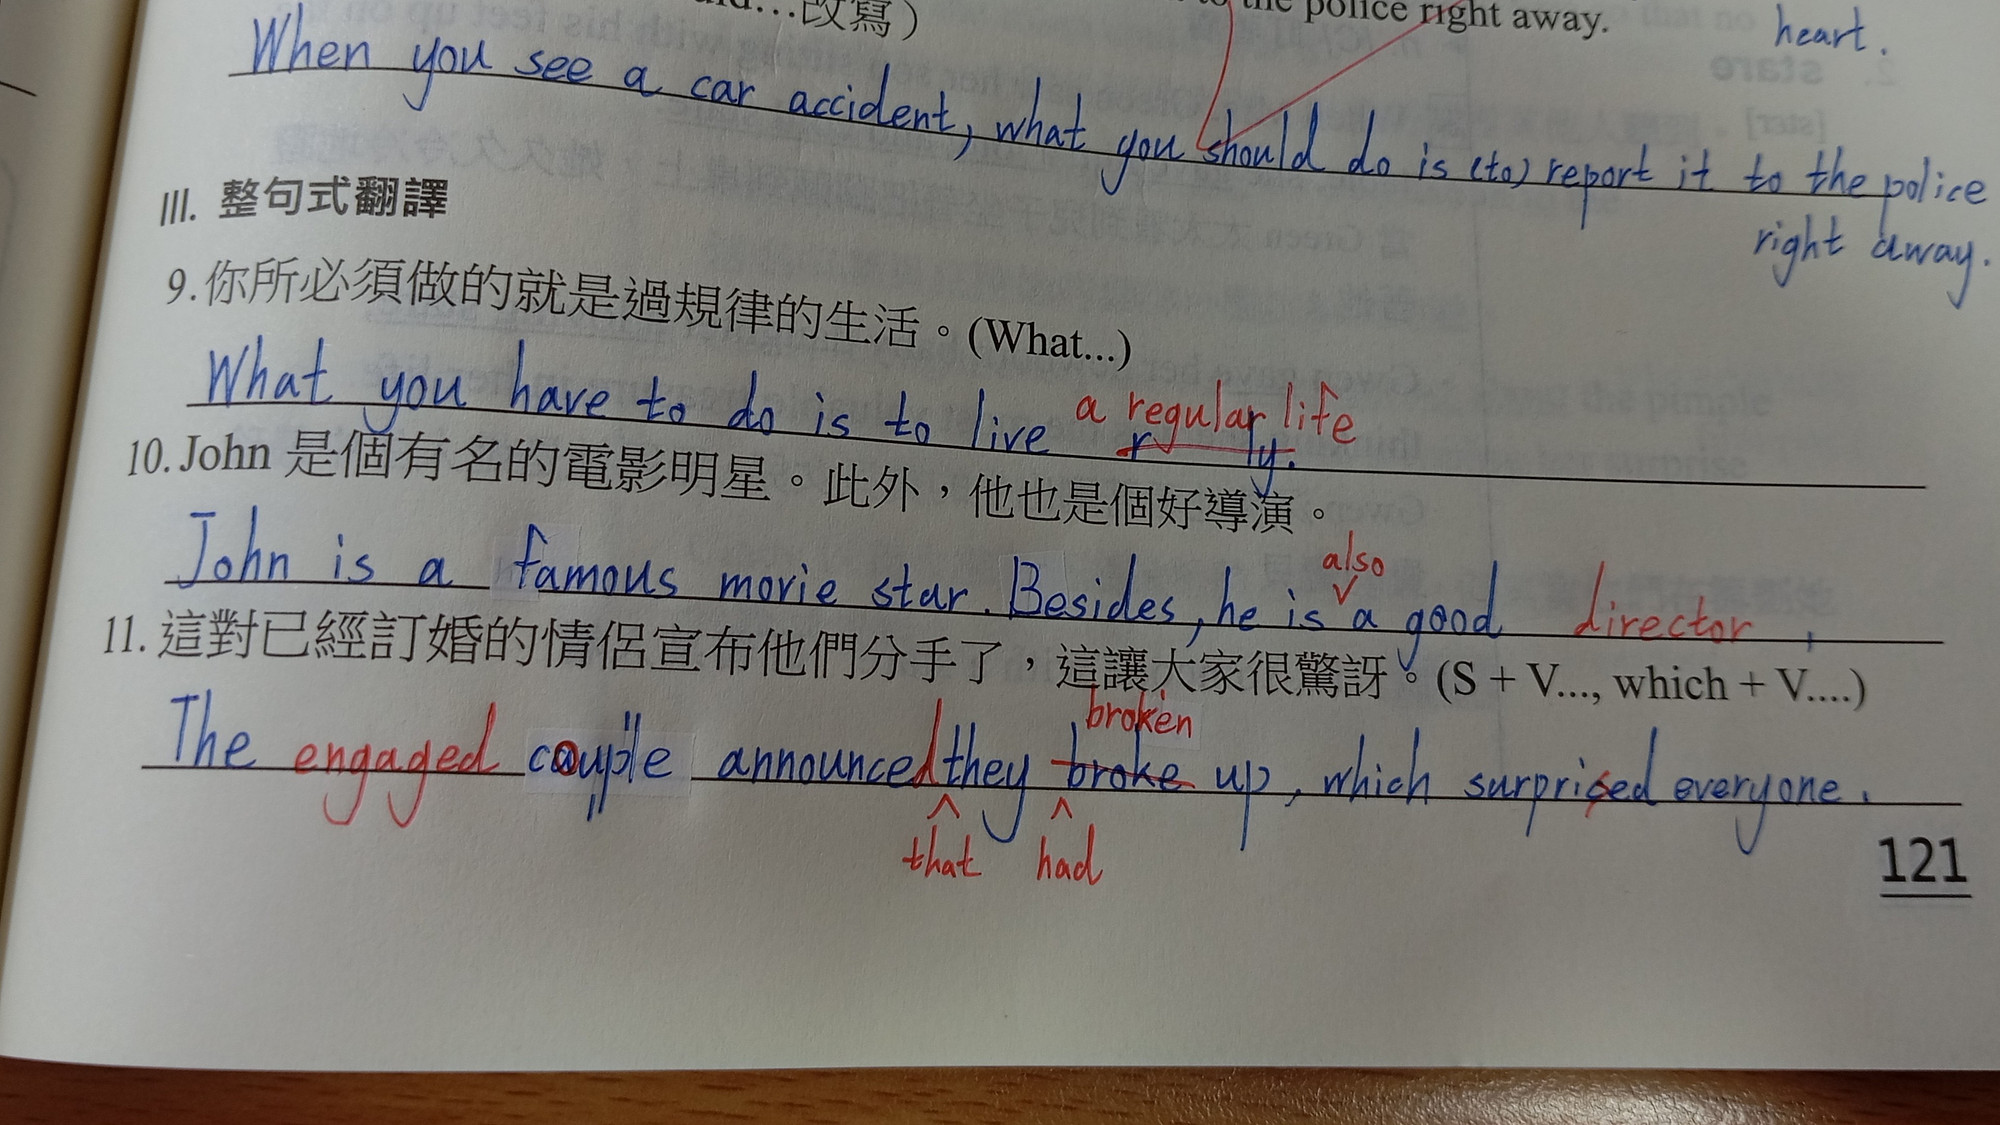 …改寫)
the police right away.
heart.
When you see a car accident, what you should do is (to) report it to the police
right away.
III. 整句式翻譯
9. 你所必須做的就是過規律的生活。(What...)
What you have to do is to live a regular life
r ly.
10. John 是個有名的電影明星。此外，他也是個好導演。
also
John is a famous movie star. Besides, he is a good director.
11. 這對已經訂婚的情侶宣布他們分手了，這讓大家很驚訝。(S + V..., which + V....)
broken
The engaged couple announced they broke up, which surprised everyone.
that had
121